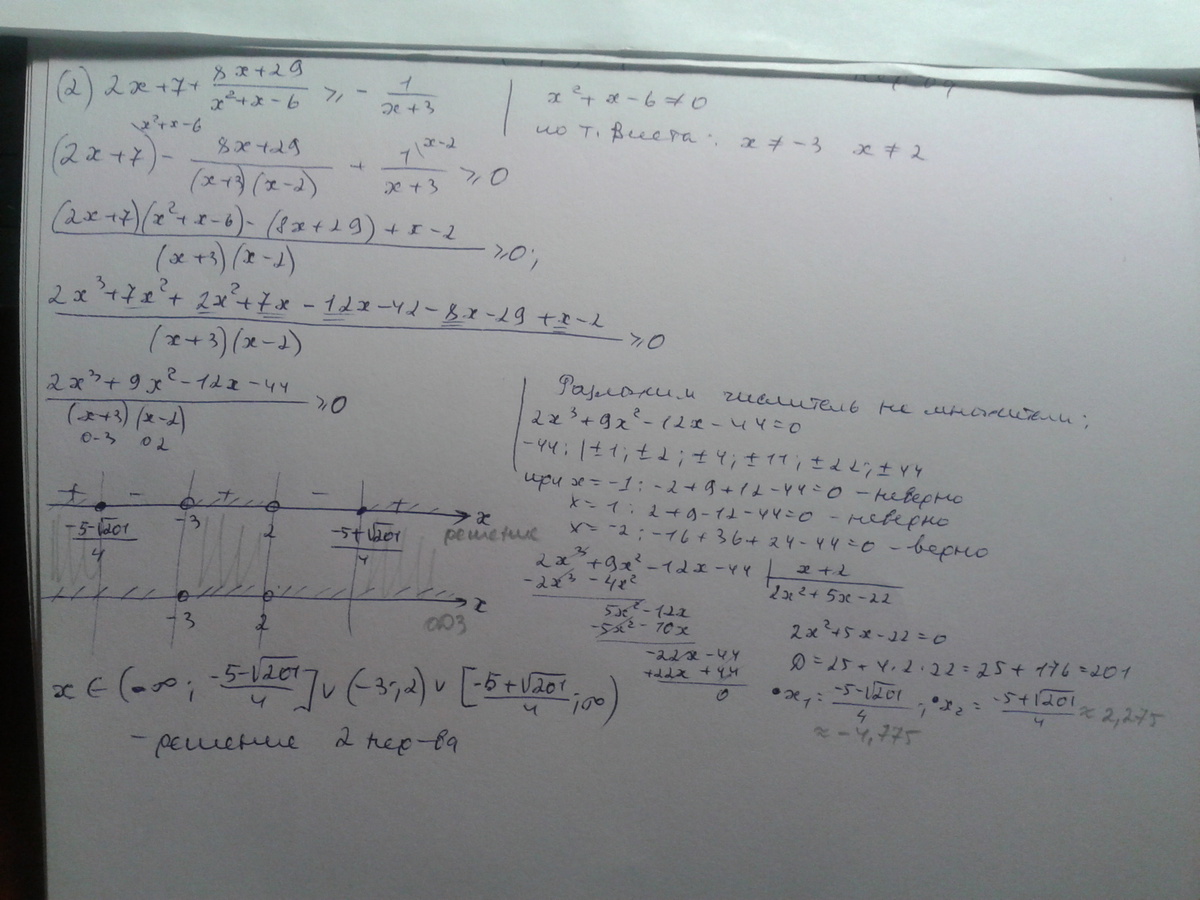 (2) 2x+7+ (8x+29)/(x²+x-6) ≥ - 1/(x+3)
x²+x-6≠0
по т. Виета: x≠-3 x≠2
(2x+7)\x²+x-6 - (8x+29)/((x+3)(x-2)) + 1\x-2/(x+3) ≥0
((2x+7)(x²+x-6)-(8x+29)+x-2)/((x+3)(x-2)) ≥0;
(2x³+7x²+2x²+7x-12x-42-8x-29+x-2)/((x+3)(x-2)) ≥0
(2x³+9x²-12x-44)/((x+3)(x-2)) ≥0
0-3 02
Разложим числитель на множители;
2x³+9x²-12x-44=0
-44: |±1; ±2; ±4; ±11; ±22; ±44
при x=-1: -2+9+12-44=0 - неверно
x=1: 2+9-12-44=0 - неверно
x=-2: -16+36+24-44=0 - верно
2x³+9x²-12x-44 | x+2
-2x³-4x² 2x²+5x-22
5x²-12x
-5x²-10x
-22x-44
+22x+44
0
2x²+5x-22=0
D=25+4·2·22=25+176=201
x₁= (-5-√201)/4; x₂= (-5+√201)/4 ≈2,275
≈-4,775
+ - + - +
(-5-√201)/4 -3 2 (-5+√201)/4 x
решение
-3 2 x
ОДЗ
x∈(-∞; (-5-√201)/4]∪(-3;2)∪[(-5+√201)/4;∞)
- решение 2 нер-ва